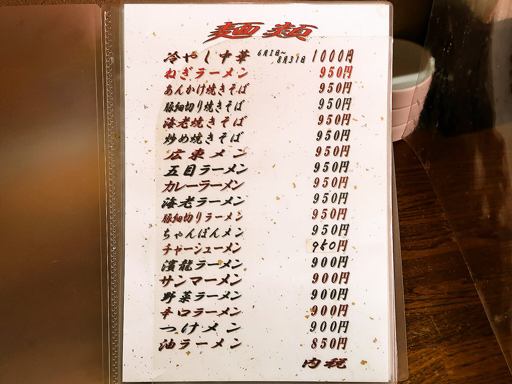 麺類
冷やし中華 6月1日～8月31日 1000円
ねぎラーメン 950円
あんかけ焼きそば 950円
豚細切り焼きそば 950円
海老焼きそば 950円
炒め焼きそば 950円
広東メン 950円
五目ラーメン 950円
カレーラーメン 950円
海老ラーメン 950円
豚細切りラーメン 950円
ちゃんぽんメン 950円
チャーシューメン 950円
濱龍ラーメン 900円
サンマーメン 900円
野菜ラーメン 900円
辛口ラーメン 900円
つけメン 900円
油ラーメン 850円
内税